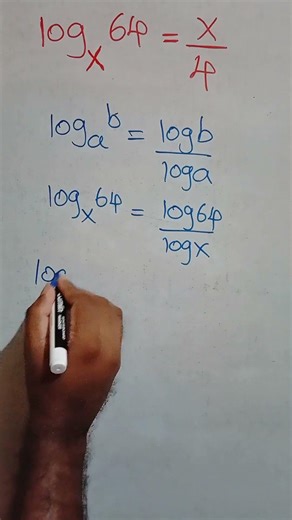 log_x 64 = x/4
log_a b = log b/log a
log_x 64 = log 64/log x
lo